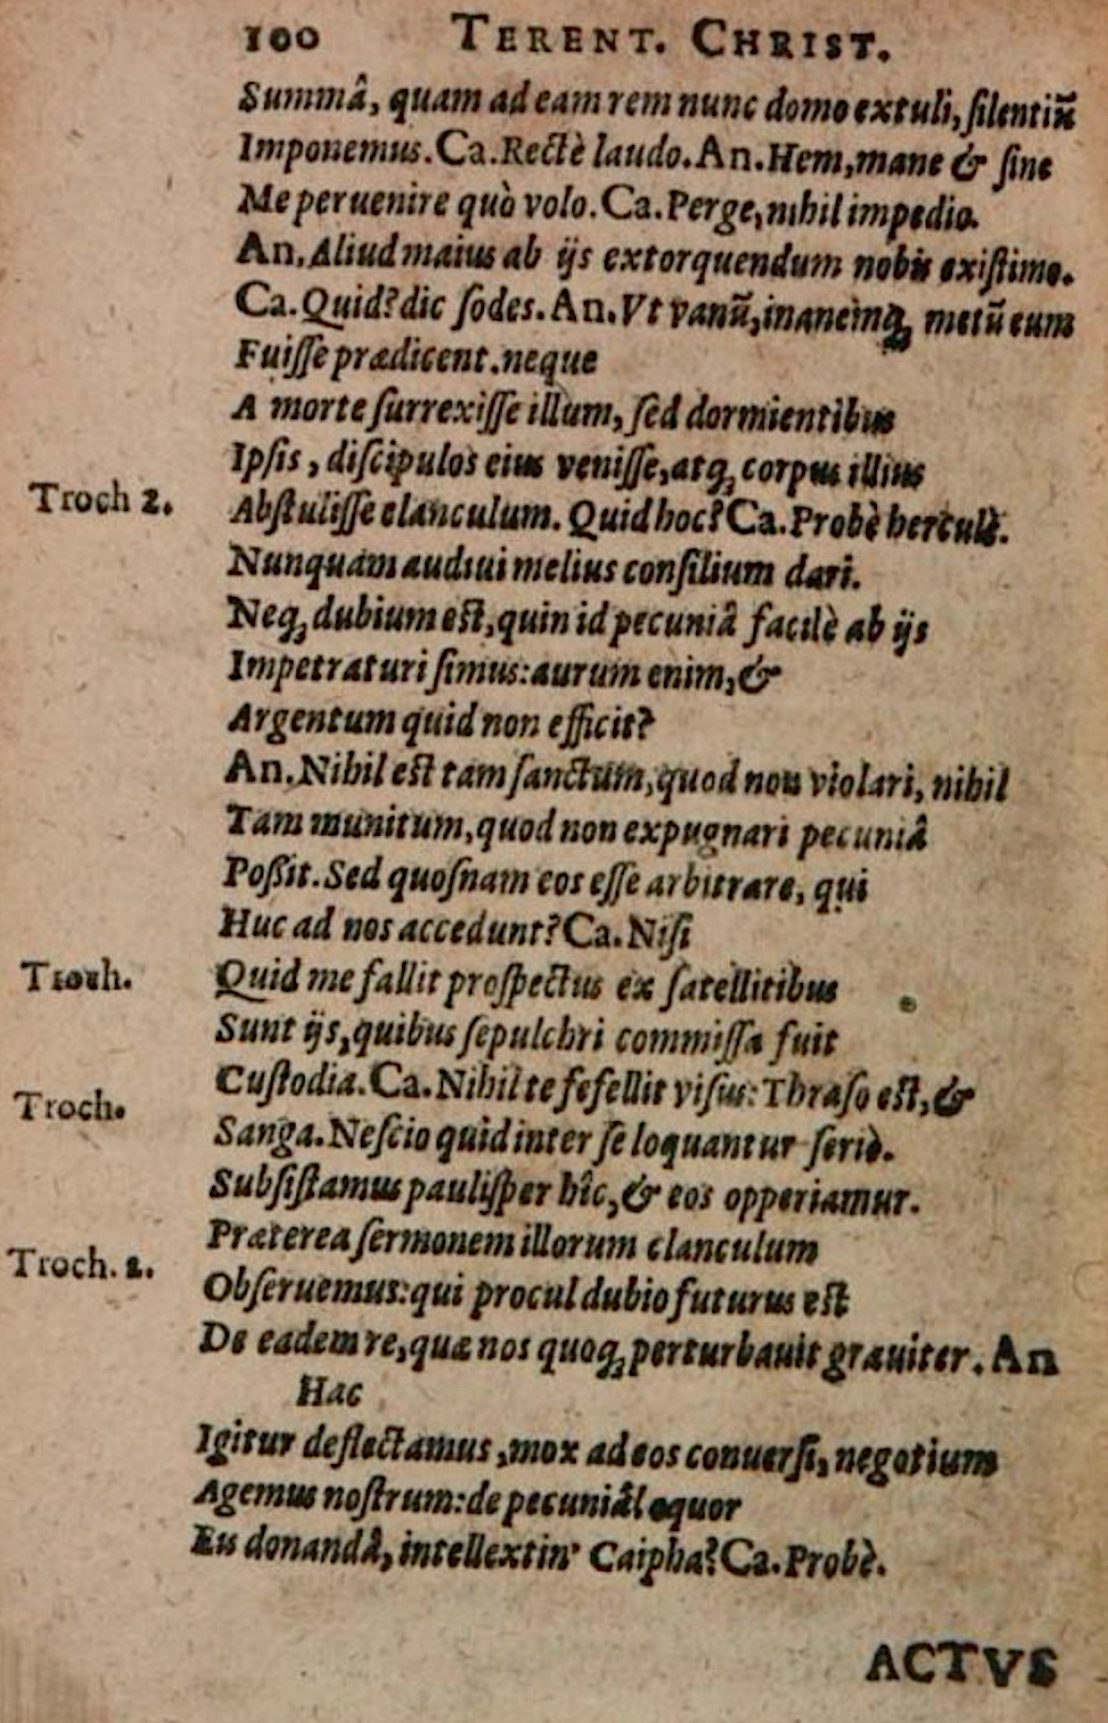 100 TERENT. CHRIST.
Summâ, quam ad eam rem nunc domo extuli, ſilentiũ
Imponemus. Ca. Rectè laudo. An. Hem, mane & ſine
Me peruenire quò volo. Ca. Perge, nihil impedio.
An. Aliud maius ab ijs extorquendum nobis exiſtimo.
Ca. Quid? dic ſodes. An. Vt vanũ, inanemq́; metũ eum
Fuiſſe prædicent. neque
A morte ſurrexiſſe illum, ſed dormientibus
Ipſis, diſcipulos eius veniſſe, atq; corpus illius
Troch 2. Abſtuliſſe clanculum. Quid hoc? Ca. Probè herculè.
Nunquam audiui melius conſilium dari.
Neq; dubium est, quin id pecuniâ facilè ab ijs
Impetraturi ſimus: aurum enim, &
Argentum quid non efficit?
An. Nihil est tam ſanctum, quod non violari, nihil
Tam munitum, quod non expugnari pecuniâ
Poßit. Sed quoſnam eos eſſe arbitrare, qui
Huc ad nos accedunt? Ca. Niſi
Troch. Quid me fallit proſpectus ex ſatellitibus
Sunt ijs, quibus ſepulchri commiſſa fuit
Troch. Cuſtodia. Ca. Nihil te fefellit viſus: Thraſo est, &
Sanga. Neſcio quid inter ſe loquantur ſeriò.
Subſiſtamus pauliſper hîc, & eos opperiamur.
Præterea ſermonem illorum clanculum
Troch. 2. Obſeruemus: qui procul dubio futurus est
De eadem re, quæ nos quoq; perturbauit grauiter. An
Hac
Igitur deflectamus, mox ad eos conuerſi, negotium
Agemus noſtrum: de pecuniâ loquor
Eis donandâ, intellextin' Caipha? Ca. Probè.
ACTVS